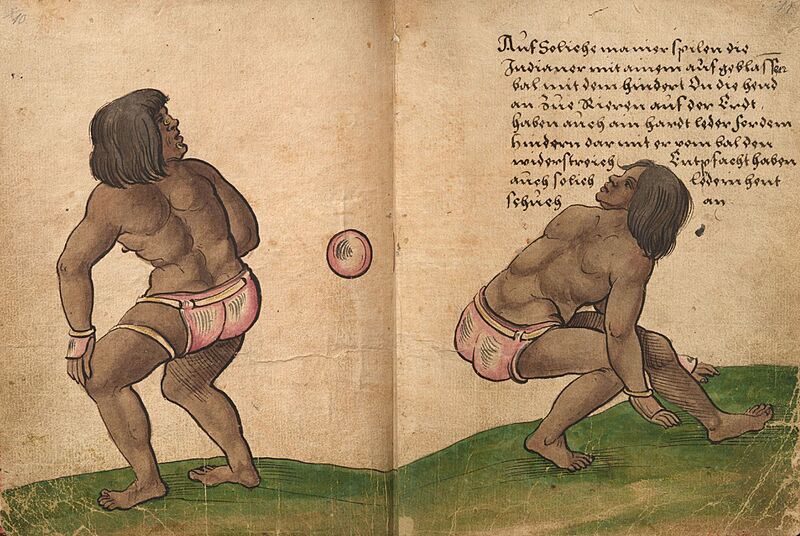 10
Auf Soliche manier spilen die
Indianer mit ainem aufgeblassen
bal mit dem hindert On die hend
an Zue Rieren auf der Erdt,
haben auch ain hardt leder for dem
hindern dar mit er vom bal den
widerstreich Entpfacht haben
auch solich ledern hent
schuch an